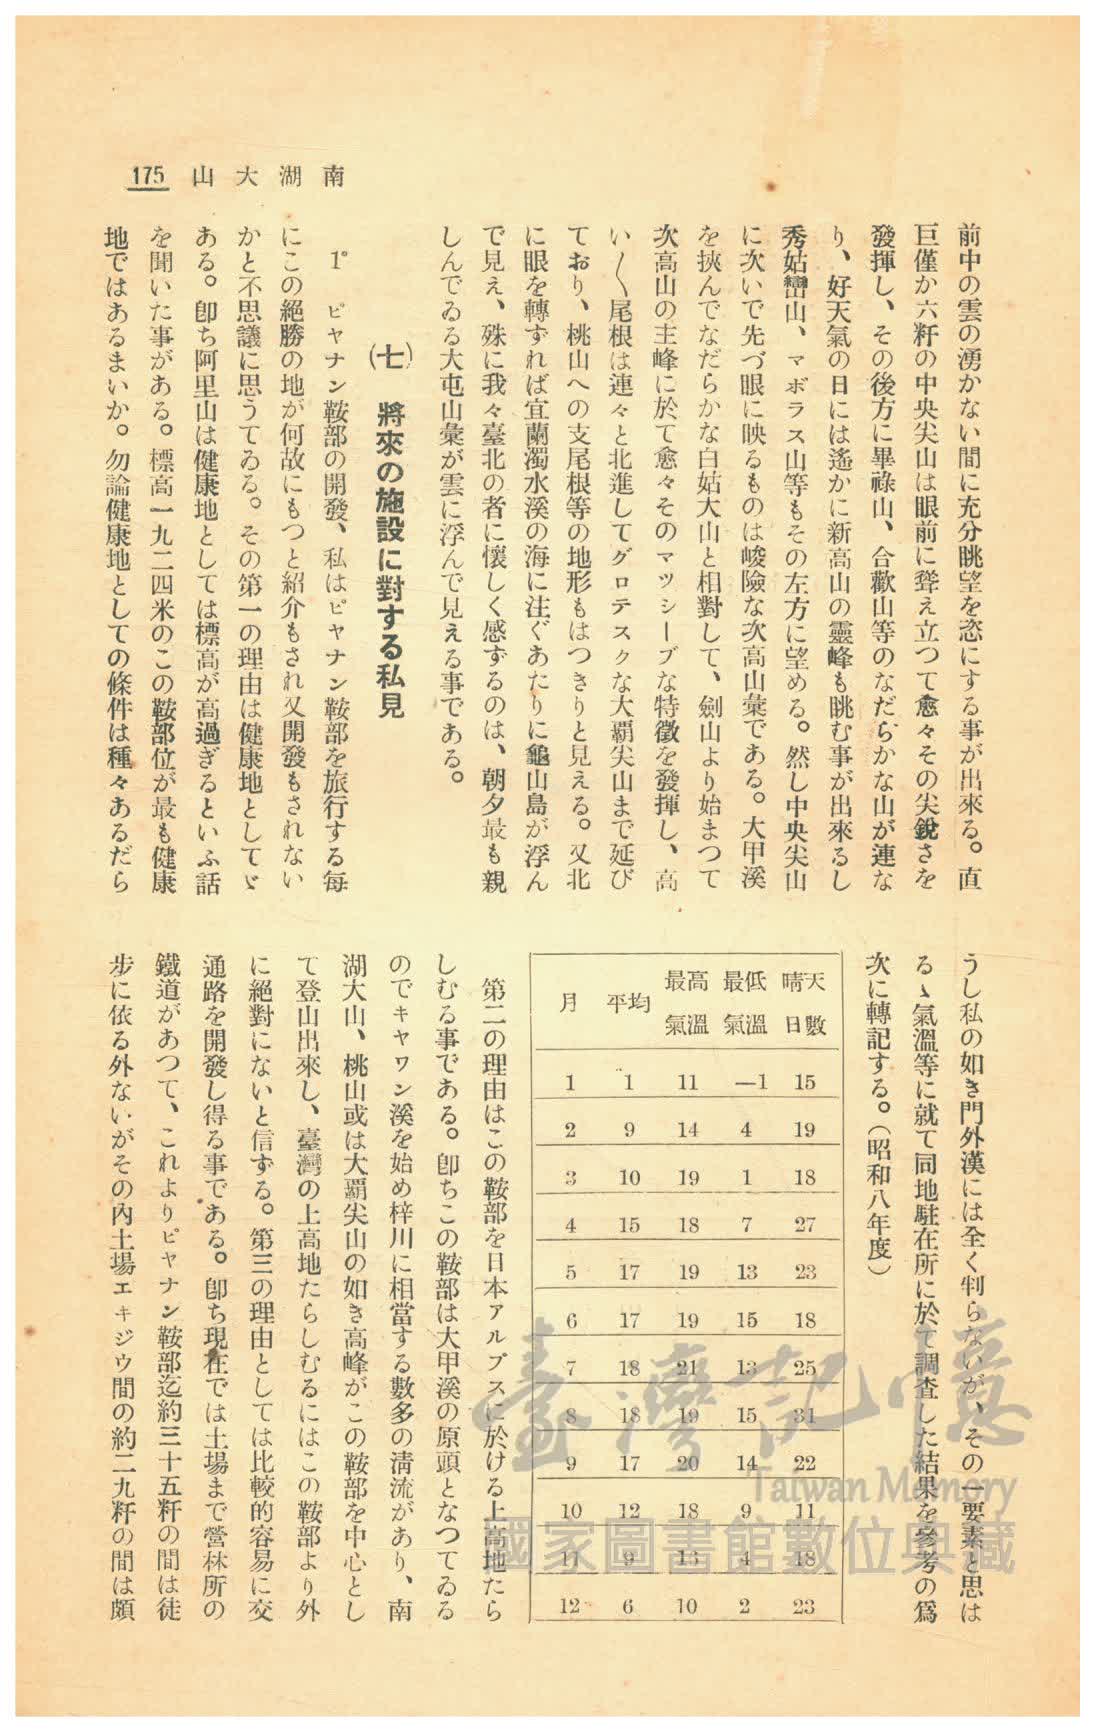 175 山大湖南
前中の雲の湧かない間に充分眺望を恣にする事が出來る。直
巨僅か六粁の中央尖山は眼前に聳え立つて愈々その尖銳さを
發揮し、その後方に畢祿山、合歡山等のなだらかな山が連な
り、好天氣の日には遙かに新高山の靈峰も眺む事が出來るし
秀姑巒山、マボラス山等もその左方に望める。然し中央尖山
に次いで先づ眼に映るものは峻險な次高山彙である。大甲溪
を挾んでなだらかな白姑大山と相對して、劍山より始まつて
次高山の主峰に於て愈々そのマツシーブな特徵を發揮し、高
い〱尾根は連々と北進してグロテスクな大覇尖山まで延び
ており、桃山への支尾根等の地形もはつきりと見える。又北
に眼を轉ずれば宜蘭濁水溪の海に注ぐあたりに龜山島が浮ん
で見え、殊に我々臺北の者に懷しく感ずるのは、朝夕最も親
しんでゐる大屯山彙が雲に浮んで見える事である。
(七) 將來の施設に對する私見
1° ピヤナン鞍部の開發、私はピヤナン鞍部を旅行する每
にこの絕勝の地が何故にもつと紹介もされ又開發もされない
かと不思議に思うてゐる。その第一の理由は健康地としてゞ
ある。卽ち阿里山は健康地としては標高が高過ぎるといふ話
を聞いた事がある。標高一九二四米のこの鞍部位が最も健康
地ではあるまいか。勿論健康地としての條件は種々あるだら
うし私の如き門外漢には全く判らないが、その一要素と思は
るゝ氣溫等に就て同地駐在所に於て調査した結果を參考の爲
次に轉記する。(昭和八年度)
月 平均 最高氣溫 最低氣溫 晴天日數
1 1 11 —1 15
2 9 14 4 19
3 10 19 1 18
4 15 18 7 27
5 17 19 13 23
6 17 19 15 18
7 18 21 13 25
8 18 19 15 31
9 17 20 14 22
10 12 18 9 11
11 9 13 4 18
12 6 10 2 23
第二の理由はこの鞍部を日本アルプスに於ける上高地たら
しむる事である。卽ちこの鞍部は大甲溪の原頭となつてゐる
のでキヤワン溪を始め梓川に相當する數多の淸流があり、南
湖大山、桃山或は大覇尖山の如き高峰がこの鞍部を中心とし
て登山出來し、臺灣の上高地たらしむるにはこの鞍部より外
に絕對にないと信ずる。第三の理由としては比較的容易に交
通路を開發し得る事である。卽ち現在では土場まで營林所の
鐵道があつて、これよりピヤナン鞍部迄約三十五粁の間は徒
步に依る外ないがその內土場エキジウ間の約二九粁の間は頗
臺灣記憶
Taiwan Memory
國家圖書館數位典藏